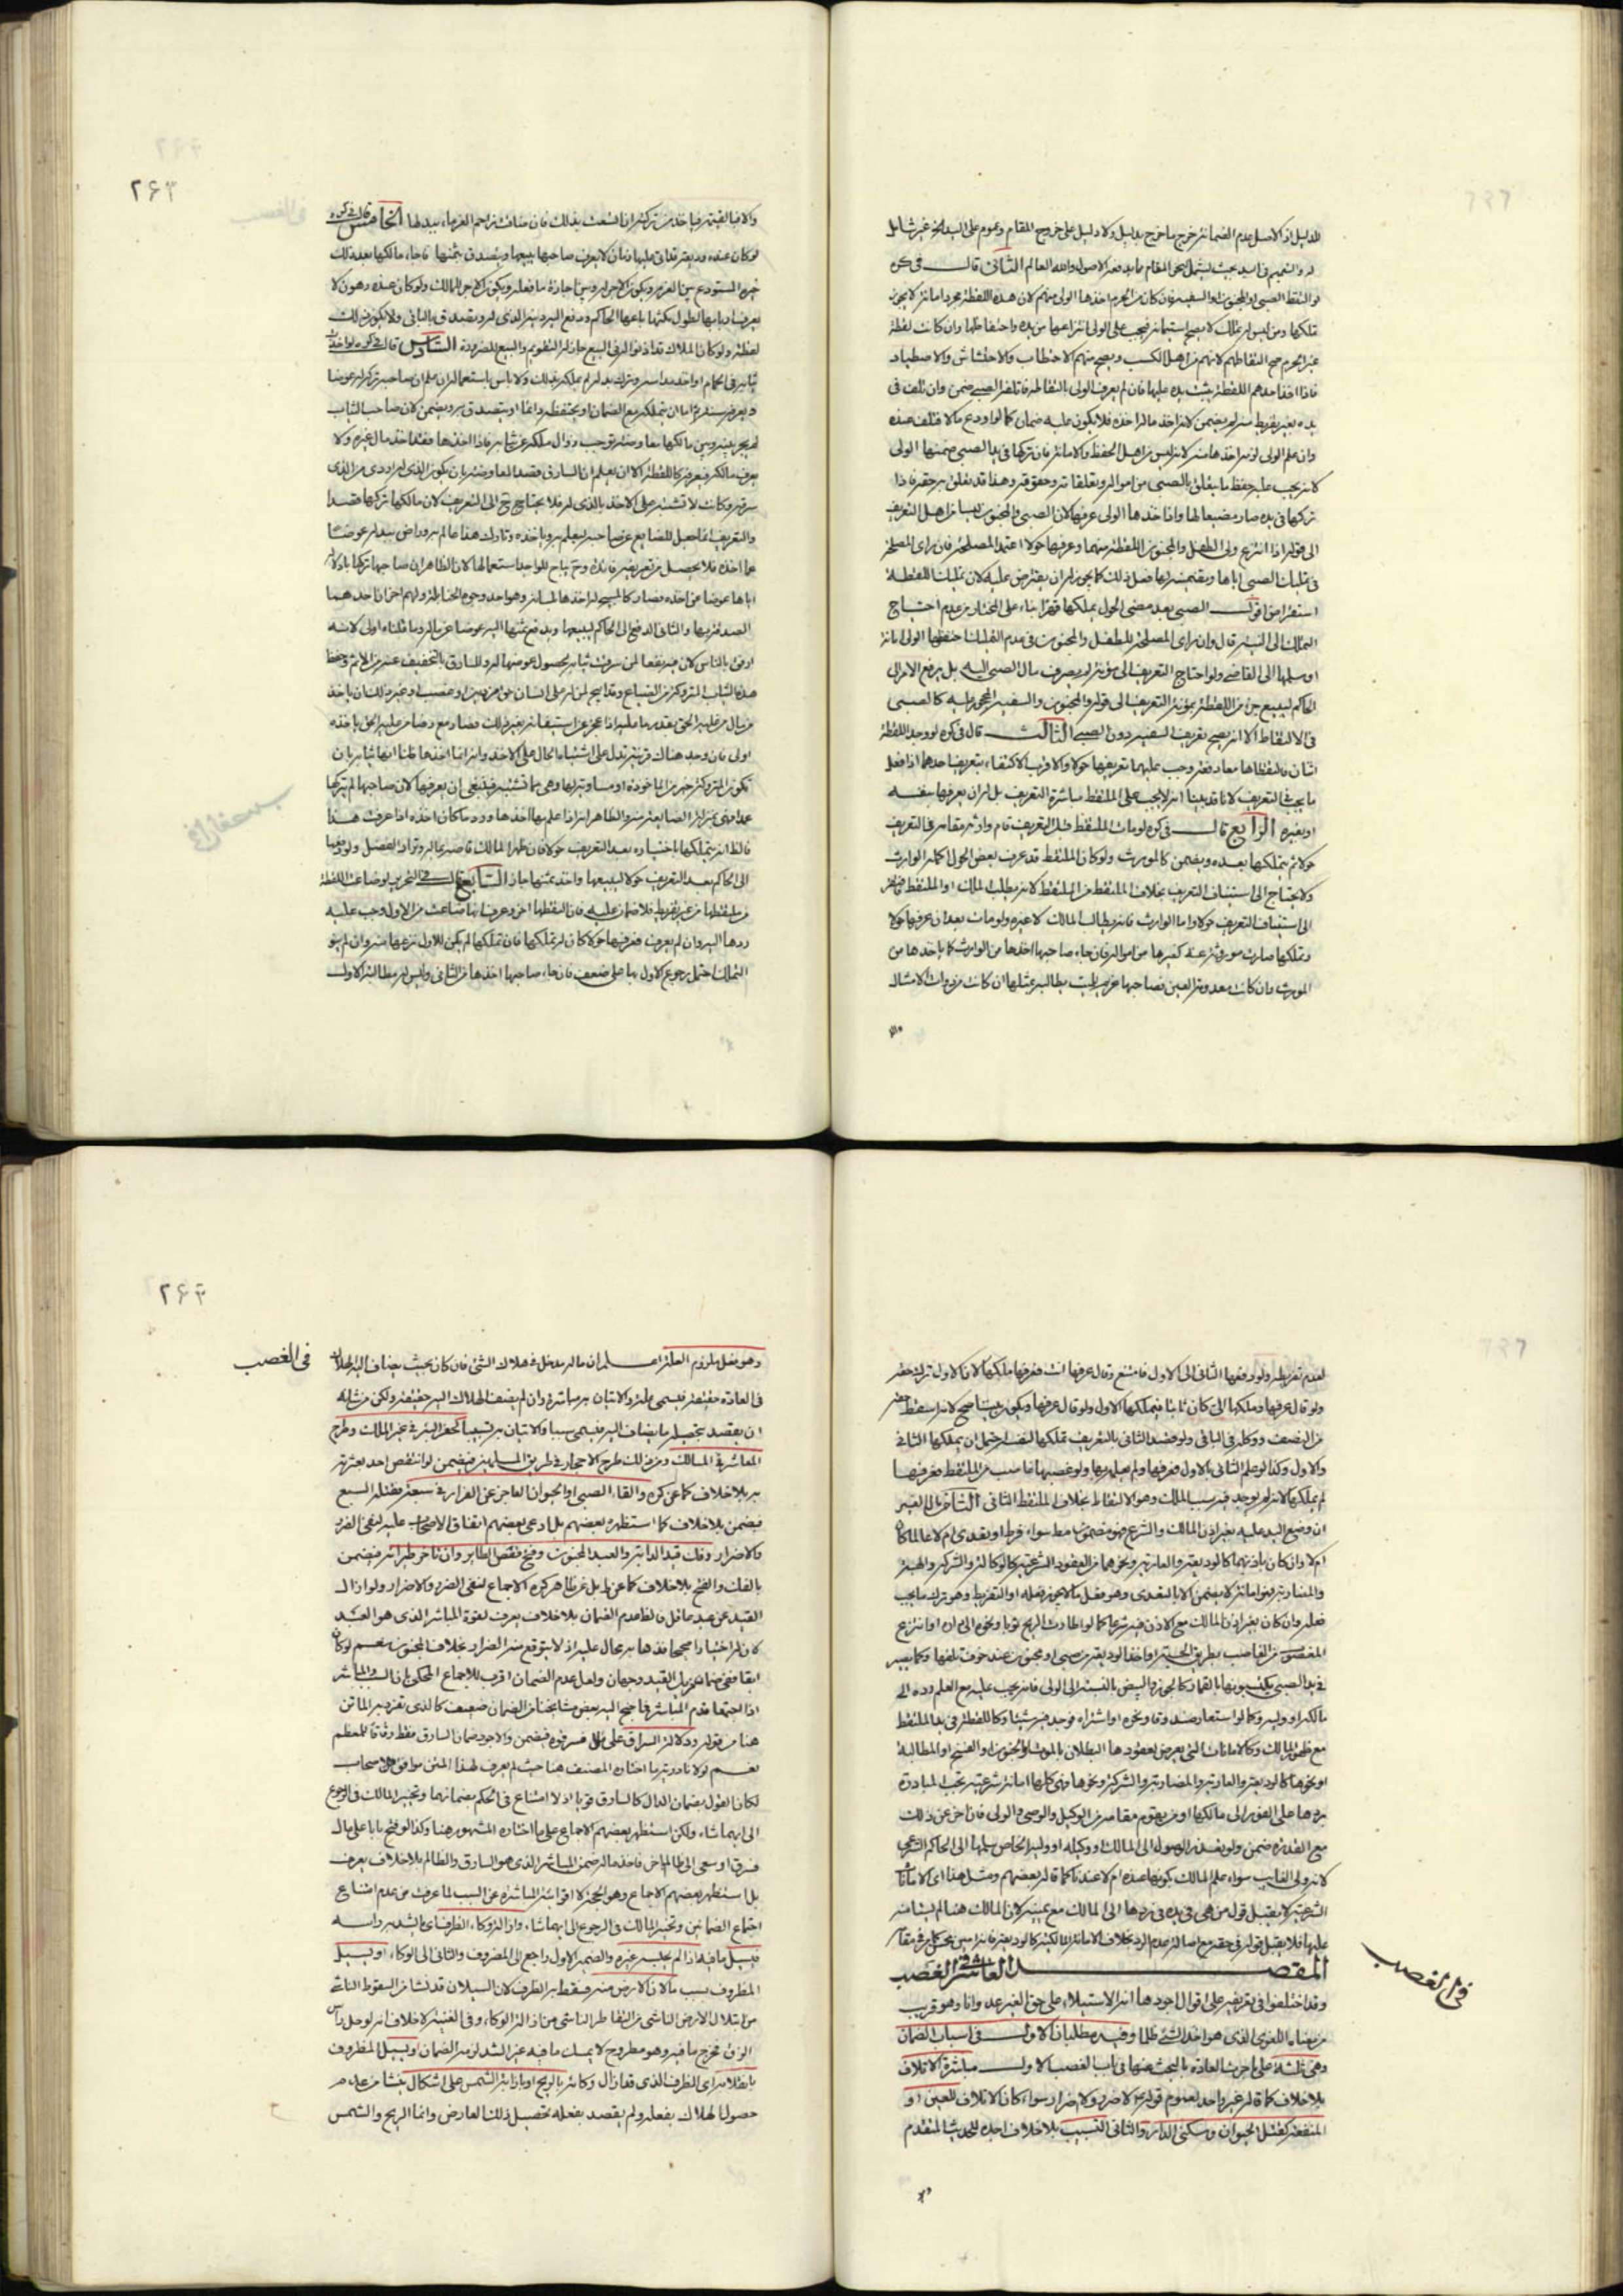 للدليل اذ الاصل عدم الضمان خرج ما خرج بدليل ولا دليل على خروج المقام وعموم على اليد غير شامل
المقام والله العالم الثانى قال فى كره
لو التقط الصبى او المجنون او السفيه فان كان من الحرم اخذها الولى منهم لان هذه اللقطة مجرد امانة لا يجوز
تملكها ومن ليس له تملك لا يصح استيمانه فيجب على الولى انتزاعها من يده واحتفاظها وان كانت لقطة
غير الحرم صح التقاطهم لانهم من اهل الكسب ويصح منهم الاحتطاب والاحتشاش والاصطياد
فاذا اخذ احدهم اللقطة يثبت يده عليها فان لم يعرف الولى بالتقاطه فاتلفه الصبى ضمن وان تلف فى
يده بغير تفريط منه لم يضمن لانه اخذ ما له اخذه فلا يكون عليه ضمان كما لو اودع مالا فتلف عنده
وان علم الولى لزمه اخذها منه لانه ليس من اهل الحفظ والامانة فان تركها فى يد الصبى ضمنها الولى
لانه يجب عليه حفظ ما يتعلق بالصبى من امواله وتعلقاته وحقوقه وهذا قد تعلق به حقه فاذا
تركها فى يده صار مضيعا لها واذا اخذها الولى عرفها لان الصبى والمجنون ليسا من اهل التعريف
الى قوله اذا انتزع ولى الطفل والمجنون اللقطة منهما وعرفها حولا اعتمد المصلحة فان راى المصلحة
فى تمليك الصبى اياها وتضمينه لها فعل ذلك كما يجوز له ان يقترض عليه لان تمليك اللقطة
استقراض اقول الصبى بعد مضى الحول يملكها قهرا بناء على المختار من عدم احتياج
التملك الى النية قال وان راى المصلحة للطفل والمجنون فى عدم التمليك حفظها الولى امانة
او سلمها الى القاضى ولو احتاج التعريف الى مؤنة لم يصرف مال الصبى اليه بل يرفع الامر الى
الحاكم ليبيع جزء من اللقطة لمؤنة التعريف الى قوله والمجنون والسفيه المحجور عليه كالصبى
فى الالتقاط الا انه يصح تعريف السفيه دون الصبى الثالث قال فى كره لو وجد اللقطة
اثنان فالتقطاها معا دفعة وجب عليهما تعريفها حولا والاقرب الاكتفاء بتعريف احدهما اذا فعل
ما يجب فى التعريف لانا قد بينا انه لا يجب على الملتقط مباشرة التعريف بل له ان يعرفها بنفسه
او بغيره الرابع قال فى كره لو مات الملتقط قبل التعريف قام وارثه مقامه فى التعريف
حولا ثم يتملكها بعده ويضمن كالمورث ولو كان الملتقط قد عرف بعض الحول اكمله الوارث
ولا يحتاج الى استيناف التعريف بخلاف الملتقط من الملتقط لانه يطلب المالك او الملتقط
الى استيناف التعريف حولا واما الوارث فانه يطالب المالك لا غيره ولو مات بعد ان عرفها حولا
وتملكها صارت موروثة عنه كغيرها من امواله فان جاء صاحبها اخذها من الوارث كما ياخذها من
المورث وان كانت معدومة العين فصاحبها غريم للميت يطالب بمثلها ان كانت من ذوات الامثال
والا
۲۶۳
والا فبالقيمة فياخذ من تركته ان اتسعت بذلك فان ضاقت زاحم الغرماء ببدلها الخامس قال فى كره
لو كان عنده وديعة قد اتى عليها زمان لا يعرف صاحبها يبيعها ويتصدق بثمنها فان جاء مالكها بعد ذلك
خيره المستودع بين الغرم ويكون الاجر له وبين اجازة ما فعله ويكون الاجر للمالك ولو كان عنده رهون لا
يعرف اربابها لطول مكثها باعها الحاكم ودفع اليه دينه الذى له ويتصدق بالباقى ولا يكون ذلك
لقطة ولو كان الملاك قد اذنوا له فى البيع جاز له التقويم والبيع للضرورة السادس قال فى كره لو اخذت
ثيابه فى الحمام او اخذ مداسه وترك بدله لم يملكه بذلك ولا باس باستعماله ان علم ان صاحبه تركه له عوضا
ويعرفه سنة ثم اما ان يتملكه مع الضمان او يحتفظه دائما او يتصدق به ويضمن لان صاحب الثياب
لم يجر بينه وبين مالكها معاوضة توجب زوال ملكه عن ثيابه فاذا اخذها فقد اخذ مال غيره ولا
يعرف مالكه فيعرفه كاللقطة الا ان يعلم ان السارق قصد المعاوضة بان يكون الذى له اردى من الذى
سرقه وكانت لا تشتبه على الاخذ بالذى له فلا يحتاج ح الى التعريف لان مالكها تركها قصدا
والتعريف انما جعل للضايع عن صاحبه ليعلم به وياخذه وتارك هذا عالم به وراض ببدله عوضا
عما اخذه فلا يحصل من تعريفه فائدة وح يباح للواجد استعمالها لان الظاهر ان صاحبها تركها باذلا
اياها عوضا عن اخذه فصار كالمبيح له اخذها بلسانه وهو احد وجوه الحنابلة ولهم اخران احدهما
الصدقة بها والثانى الدفع الى الحاكم ليبيعها ويدفع ثمنها اليه عوضا عن ماله وما قلناه اولى لانه
ارفق بالناس لان فيه نفعا لمن سرقت ثيابه بحصول عوضها له وللسارق بالتخفيف عنه من الاثم وحفظ
هذه الثياب المتروكة من الضياع وقد ابيح لمن له على انسان حق من دين او غصب او غير ذلك ان ياخذ
من مال من عليه الحق بقدر ما عليه اذا عجز عن استيفائه بغير ذلك فصار مع رضا من عليه الحق باخذه
اولى فان وجد هناك قرينة تدل على اشتباه الحال على الاخذ وانه انما اخذها ظنا انها ثيابه بان
تكون المتروكة خيرا من الماخوذة او مساوية لها وهى مما تشتبه فينبغى ان يعرفها لان صاحبها لم يتركها
عمدا فهى بمنزلة الضايعة منه والظاهر انه اذا علم بها اخذها ورد ما كان اخذه اذا عرفت هذا
فانه يتملكها باختياره بعد التعريف حولا فان ظهر المالك قاصه بماله وترادا الفضل ولو دفعها
الى الحاكم بعد التعريف حولا ليبيعها واخذ ثمنها جاز السابع قال فى التحرير لو ضاعت اللقطة
من ملتقطها من غير تفريط فلا ضمان عليه فان التقطها اخر وعرف انها ضاعت من الاول وجب عليه
ردها اليه وان لم يعرف فعرفها حولا كان له تملكها فان تملكها لم يكن للاول نزعها منه وان لم ينو
التملك احتمل رجوع الاول بها على ضعف فان جاء صاحبها اخذها من الثانى وليس له مطالبة الاول
لعدم تفريطه ولو دفعها الثانى الى الاول فامتنع وقال عرفها انت فعرفها ملكها لان الاول ترك حقه
ولو قال عرفها وملكها لى كان نائبا فيتملكها الاول ولو قال عرفها وتكون بيننا صح لانه اسقط حقه
من النصف ووكله فى الباقى ولو قصد الثانى بالتعريف تملكها لنفسه احتمل ان يملكها الثانى
والاول وكذا لو علم الثانى بالاول فعرفها ولم يعلمه بها ولو غصبها غاصب من الملتقط فعرفها
لم يملكها لانه لم يوجد فيه سبب الملك وهو الالتقاط بخلاف الملتقط الثانى الثامن مال الغير
ان وضع اليد عليه بغير اذن المالك والشرع فهو مضمون مط سواء فرط او تعدى ام لا عالما كان
ام لا وان كان باذنهما كالوديعة والعارية ونحوهما من العقود الشرعية كالوكالة والشركة والهبة
والمضاربة فهو امانة لا يضمن الا بالتعدى وهو فعل ما لا يجوز فعله او التفريط وهو ترك ما يجب
فعله وان كان بغير اذن المالك مع الاذن فيه شرعا كما لو اطارت الريح ثوبا ونحوه الى داره او انتزع
المغصوب من الغاصب بطريق الحسبة او اخذ الوديعة من صبى او مجنون عند خوف تلفها وكما يصير
فى يد الصبى بكسبه القمار كالجوز والبيض بالنسبة الى الولى فانه يجب عليه مع العلم رده الى
مالكه او وليه وكما لو استعار صندوقا ونحوه او اشتراه فوجد فيه شيئا وكاللقطة فى يد الملتقط
مع ظهور المالك وكالامانات التى يعرض لعقودها البطلان بالموت والجنون او الفسخ او المطالبة
او نحوها كالوديعة والعارية والمضاربة والشركة ونحوها فهى كلها امانة شرعية تجب المبادرة
بردها على الفور الى مالكها او من يقوم مقامه من الوكيل والوصى والولى فان اخر عن ذلك
مع القدرة ضمن ولو تعذر الوصول الى المالك او وكيله او وليه الخاص سلمها الى الحاكم الشرعى
لانه ولى الغايب سواء علم المالك بكونها عنده ام لا عندنا كما قاله بعضهم ومثل هذا اى الامانات
الشرعية لا يقبل قول من هى فى يده فى ردها الى المالك مع يمينه لان المالك هنا لم يستامنه
عليها فلا يقبل قوله فى حقه مع اصالة عدم الرد بخلاف الامانة المالكية كالوديعة
المقصد العاشر فى الغصب
فى الغصب
وقد اختلفوا فى تعريفه على اقوال اجودها انه الاستيلاء على حق الغير عدوانا وهو قريب
من معناه اللغوى الذى هو اخذ الشئ ظلما وفيه مطلبان الاول فى اسباب الضمان
وهى ثلثة على ما جرت العادة بالبحث عنها فى باب الغصب الاول مباشرة الاتلاف
بلا خلاف كما قاله غير واحد لعموم قوله لا ضرر ولا ضرار سواء كان الاتلاف للعين او
المنفعة كقتل الحيوان وسكنى الدار والثانى التسبيب بلا خلاف اجده للحديث المتقدم
۲۶۴
فى الغصب
وهو فعل ملزوم العلة اعلم ان ما له مدخل فى هلاك الشئ فان كان بحيث يضاف اليه الهلاك
فى العادة حقيقة فيسمى علة والاتيان به مباشرة وان لم يضف الهلاك اليه حقيقة ولكن من شانه
ان يقصد بتحصيله ما يضاف اليه فيسمى سببا والاتيان به تسبيبا كحفر البئر فى غير الملك وطرح
المعاثر فى المسالك ومن ذلك طرح الاحجار فى طريق المسلمين فيضمن لو انتقص احد بعثرته
به بلا خلاف كما عن كره والقاء الصبى او الحيوان العاجز عن الفرار فى مسبعة فقتله السبع
فيضمن بلا خلاف كما استظهره بعضهم بل ادعى بعضهم اتفاق الاصحاب عليه لنفى الضرر
والاضرار وفك قيد الدابة والعبد المجنون وفتح قفص الطاير وان تاخر طيرانه فيضمن
بالفك والفتح بلا خلاف كما عن بل عن ظاهر كره الاجماع لنفى الضرر والاضرار ولو ازال
القيد عن عبد عاقل فالظ عدم الضمان بلا خلاف يعرف لقوة المباشر الذى هو العبد
لان له اختيارا صحيحا فذهابه محال عليه اذ لا يتوقع منه الضرار بخلاف المجنون نعم لو كان
ابقا ففى ضمانه مزيل القيد وجهان ولعل عدم الضمان اقرب للاجماع المحكى بان السبب والمباشر
اذا اجتمعا قدم المباشر فما جنح اليه بعض مشايخنا من الضمان ضعيف كالذى تفرد به الماتن
هنا من قوله ودلالة السراق على مال فسرقوه فيضمن والاجود ضمان السارق فقط وفاقا للمعظم
نعم لولا ندرة ما اختاره المصنف هنا حيث لم يعرف لهذا المتن موافق من اصحاب
لكان القول بضمان الدال كالسارق قويا اذ لا امتناع فى الحكم بضمانهما وتخيير المالك فى الرجوع
الى ايهما شاء ولكن استظهر بعضهم الاجماع على ما اختاره المشهور هنا وكذا لو فتح بابا على مال
فسرق او سعى الى ظالم باخر فاخذ ماله ضمن المباشر الذى هو السارق والظالم بلا خلاف يعرف
بل استظهر بعضهم الاجماع وهو الحجة لا اقوائية المباشرة عن السبب لما عرفت من عدم امتناع
اجتماع الضمانين وتخيير المالك فى الرجوع الى ايهما شاء واذا ازال وكاء الظرف اى ما يشد به راسه
فسيل ما فيه اذا لم يحبسه غيره والضمير الاول راجع الى المظروف والثانى الى الوكاء او يسيل
المظروف بسبب ما الان الارض منه فسقط به الظرف لان السيلان قد نشا من السقوط الناشى
من ابتلال الارض الناشى من التقاطر الناشى من ازالة الوكاء وفى الغنية لا خلاف انه لو حل راس
الزق فخرج ما فيه وهو مطروح لا يمسك ما فيه غير الشد لزمه الضمان ويسيل المظروف
بانقلابه اى الظرف الذى قد ازال وكائه بالريح او باذابة الشمس على اشكال ينشا من عدم
حصول الهلاك بفعله ولم يقصد بفعله تحصيل ذلك العارض وانما الريح والشمس